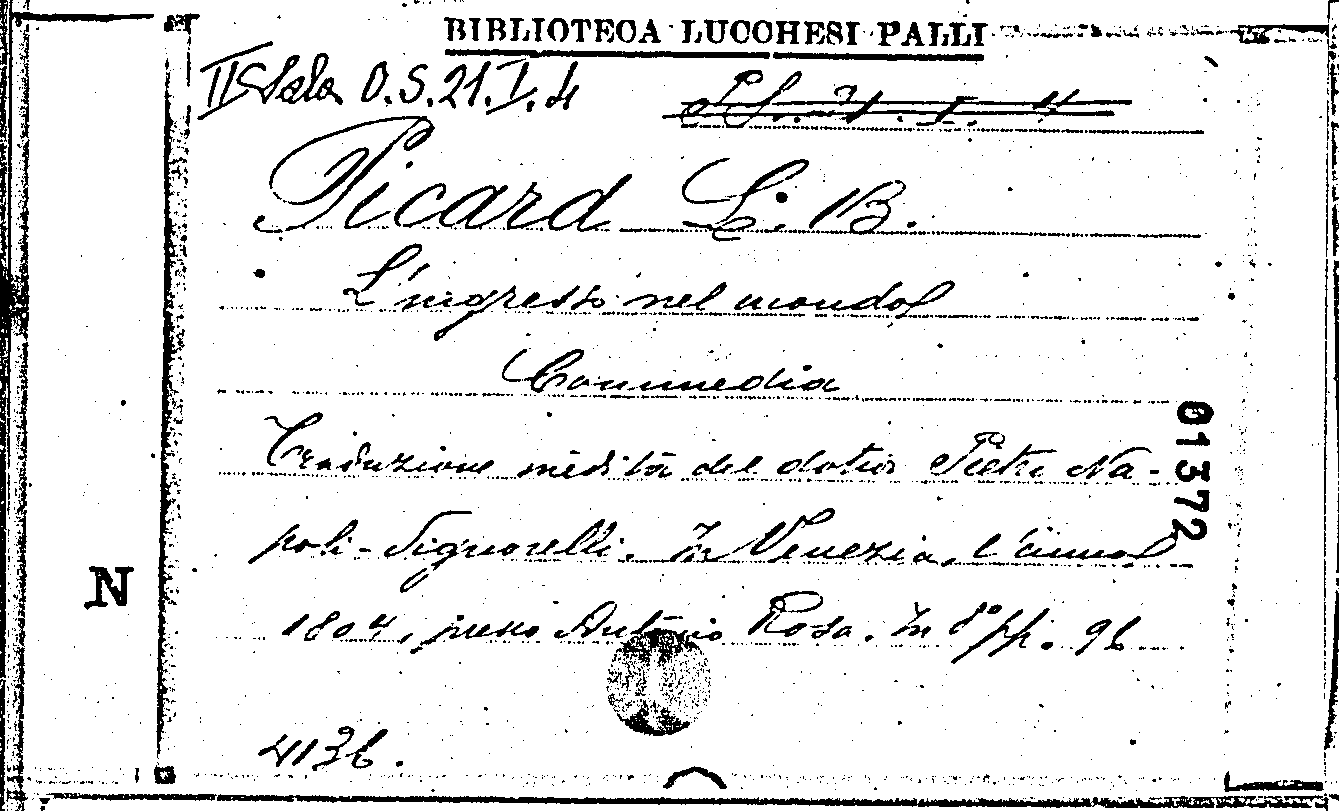 BIBLIOTECA LUCCHESI PALLI
II Sala O.S.21.I.4
Picard L. B.
L'ingresso nel mondo
Commedia
Traduzione inedita del dottor Pietro Na-
poli-Signorelli. In Venezia, l'anno
1804, presso Antonio Rosa. In 8° pp. 96
4136.
01372
N